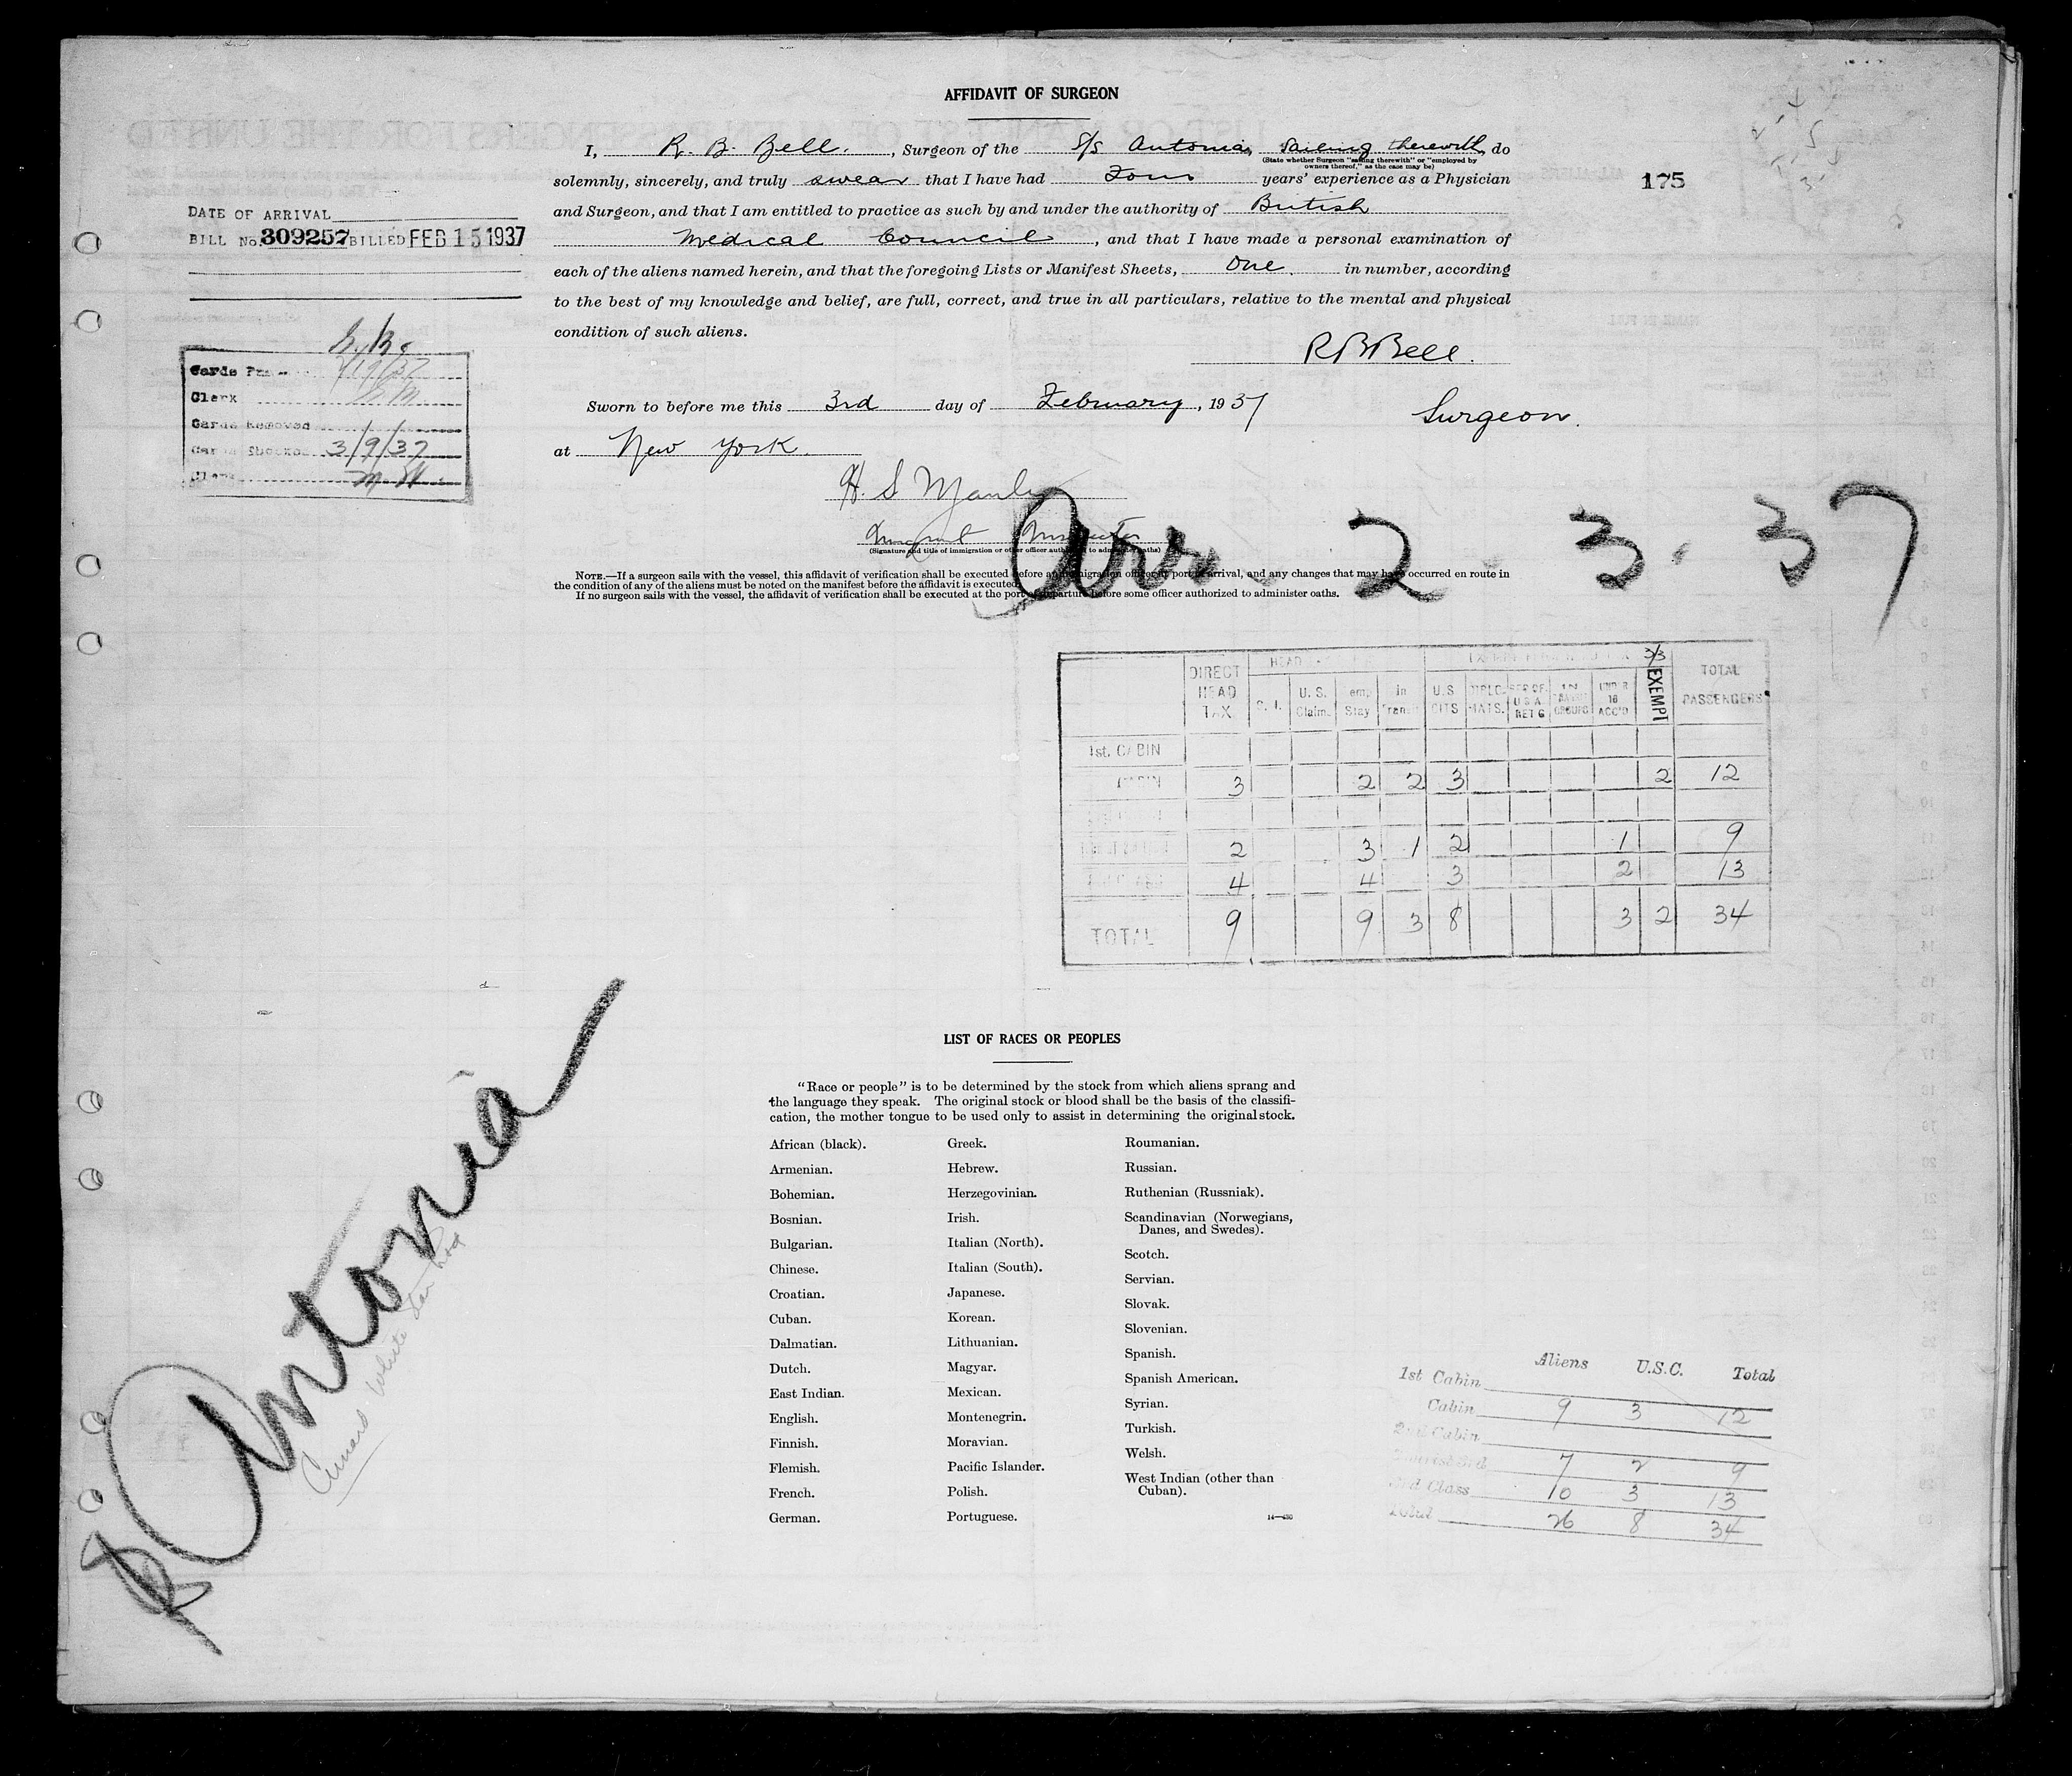 AFFIDAVIT OF SURGEON
I, R. B. Bell., Surgeon of the S/S Antonia, Sailing therewith, do
(State whether Surgeon "sailing therewith" or "employed by
owners thereof," as the case may be)
solemnly, sincerely, and truly swear that I have had Four years' experience as a Physician
175
and Surgeon, and that I am entitled to practice as such by and under the authority of British
Medical Council, and that I have made a personal examination of
each of the aliens named herein, and that the foregoing Lists or Manifest Sheets, One. in number, according
to the best of my knowledge and belief, are full, correct, and true in all particulars, relative to the mental and physical
condition of such aliens.
R B Bell.
Surgeon.
Sworn to before me this 3rd day of February, 1937
at New York.
H. S Manley
Immigrant Inspector
(Signature and title of immigration or other officer authorized to administer oaths)
NOTE.—If a surgeon sails with the vessel, this affidavit of verification shall be executed before an immigration officer at port of arrival, and any changes that may have occurred en route in
the condition of any of the aliens must be noted on the manifest before the affidavit is executed.
If no surgeon sails with the vessel, the affidavit of verification shall be executed at the port of departure before some officer authorized to administer oaths.
DATE OF ARRIVAL
BILL No. 309257 BILLED FEB 15 1937
Cards
Clerk
Cards Removed
3/9/37
Clerk
Arr. 2 3 · 37
DIRECT HEAD TAX HEAD U. S. Claim. Temp Stay In Transit U.S CITS DIPLO-MATS. UNDER 16 ACC'D EXEMPT TOTAL PASSENGERS
1st. CABIN
CABIN 3 2 2 3 2 12
2 3 1 2 1 9
4 4 3 2 13
TOTAL 9 9 3 8 3 2 34
LIST OF RACES OR PEOPLES
"Race or people" is to be determined by the stock from which aliens sprang and
the language they speak. The original stock or blood shall be the basis of the classifi-
cation, the mother tongue to be used only to assist in determining the original stock.
African (black).
Armenian.
Bohemian.
Bosnian.
Bulgarian.
Chinese.
Croatian.
Cuban.
Dalmatian.
Dutch.
East Indian.
English.
Finnish.
Flemish.
French.
German.
Greek.
Hebrew.
Herzegovinian.
Irish.
Italian (North).
Italian (South).
Japanese.
Korean.
Lithuanian.
Magyar.
Mexican.
Montenegrin.
Moravian.
Pacific Islander.
Polish.
Portuguese.
Roumanian.
Russian.
Ruthenian (Russniak).
Scandinavian (Norwegians,
Danes, and Swedes).
Scotch.
Servian.
Slovak.
Slovenian.
Spanish.
Spanish American.
Syrian.
Turkish.
Welsh.
West Indian (other than
Cuban).
Aliens U.S.C. Total
1st Cabin
Cabin 9 3 12
2nd Cabin
Tourist 3rd 7 2 9
3rd Class 10 3 13
Total 26 8 34
Antonia
Cunard White Star